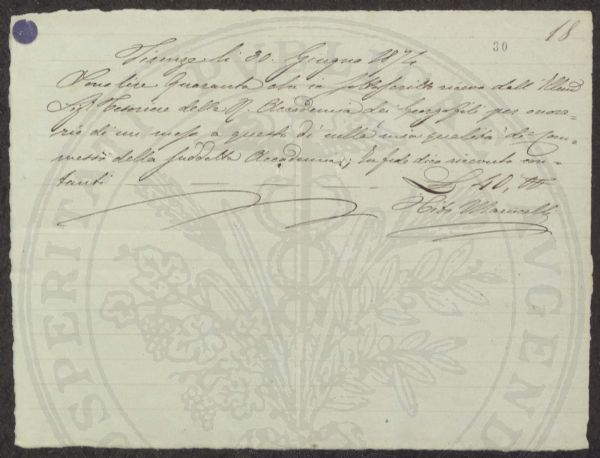 18
30
Firenze li 30. Giugno 1874
Sono lire Quaranta che io sottoscritto ricevo dall' Illmo
Sigr Tesoriere della R. Accademia dei Georgofili per onora-
rio di un mese a questo dì nella mia qualità di Com-
messo della suddetta Accademia; In fede dico ricevute con-
tanti
L 40,00
PUBLI
PROSPERITA
AUGENDA